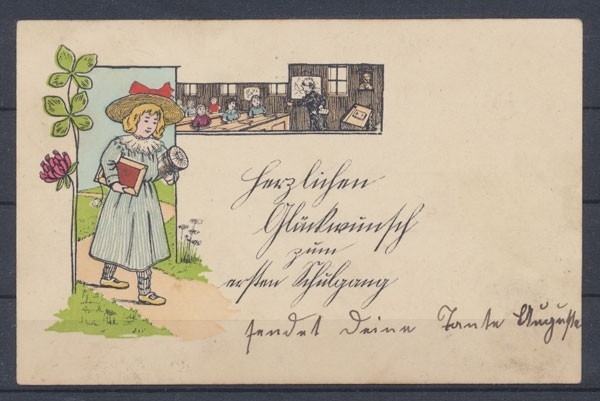 Herzlichen
Glückwunsch
zum
ersten Schulgang
sendet Deine Tante Auguste